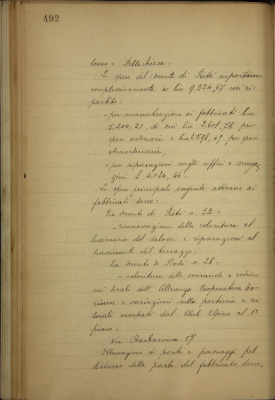 492
tosso e della chiesa.
Le spese del Monte di Pietà importarono
complessivamente a lire 9.224,67 così ri-
partite:
- per manutenzioni ai fabbricati lire
5.200,21, di cui lire 2.601,76 per
spese ordinarie e lire 2.598,45 per spese
straordinarie,
- per riparazioni negli uffici e
L. 4.024,46.
Le opere principali eseguite attorno ai
fabbricati sono:
Via Monte di Pietà n. 32 =
- rinnovazione della coloritura al
lucernario del salone e riparazioni al
pavimento del terrazzo;
Via Monte di Pietà n. 28 =
- coloriture delle serrande e vetrine
nei locali dell'Alleanza Cooperativa
e variazioni nella portieria e nei
locali occupati dal Club Alpino al 1º
piano;
Via Barbaroux 17
Otturazione di porte e passaggi pel
distacco della parte del fabbricato